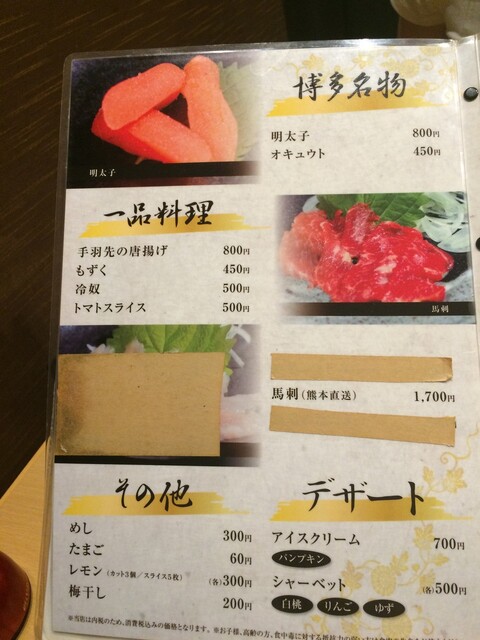 博多名物
明太子 800円
オキュウト 450円
明太子
一品料理
手羽先の唐揚げ 800円
もずく 450円
冷奴 500円
トマトスライス 500円
馬刺
馬刺(熊本直送) 1,700円
その他
めし 300円
たまご 60円
レモン(カット3個/スライス5枚) (各)300円
梅干し 200円
デザート
アイスクリーム 700円
パンプキン
シャーベット (各)500円
白桃 りんご ゆず
※当店は内税のため、消費税込みの価格となります。 ※お子様、高齢の方、食中毒に対する抵抗力の